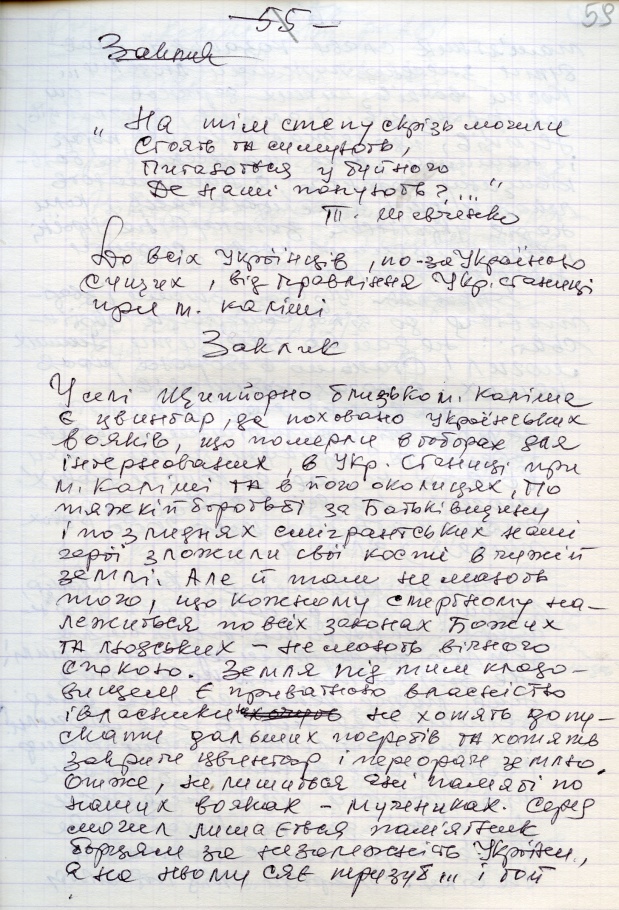 - 55 -
59
Заклик
„ На тім степу скрізь могили
Стоять та сумують,
Питаються у буйного
Де наші панують?..."
Т. Шевченко
До всіх Українців, по-за Україною
сущих, від Правління Укр. Станиці
при м. Каліші
Заклик
У селі Щипйорно близько м. Каліша
є цвинтар, де поховано українських
вояків, що померли в таборах для
інтернованих, в Укр. Станиці при
м. Каліші та в його околицях, По
тяжкій боротьбі за Батьківщину
і по злиднях емігрантських наші
герої зложили свої кості в чужій
землі. Але й там не мають
того, що кожному смертному на-
лежиться по всіх законах Божих
та людських - не мають вічного
спокою. Земля під тим кладо-
вищем є приватною власністю
і власники не хотять допу-
скати дальших погребів та хотять
закрити цвинтар і переорати землю.
Отже, не лишиться ані памяті по
наших вояках - мучениках. Серед
могил лишається пам'ятник
борцям за незалежність України,
а на ньому сяє тризуб ... і той